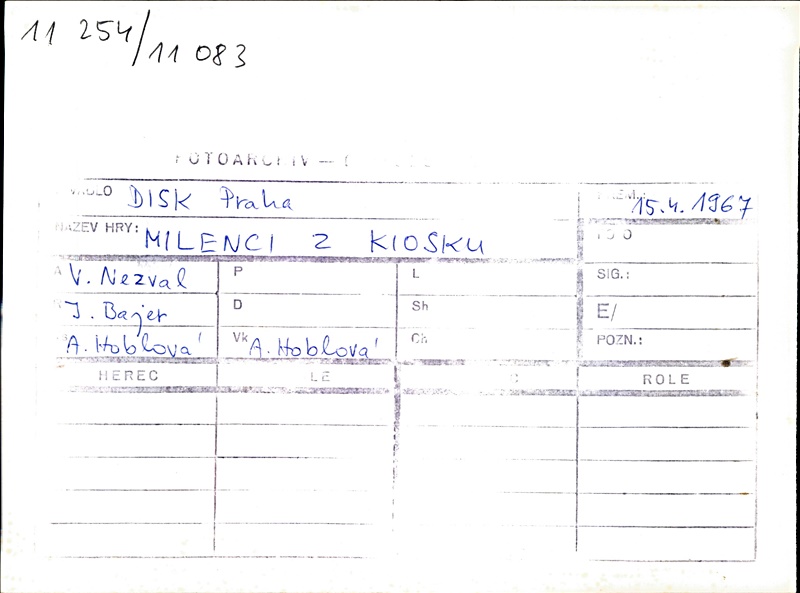 11 254/11 083
FOTOARCHIV —
DISK Praha
15.4.1967
NÁZEV HRY: MILENCI Z KIOSKU
V. Nezval P L SIG.:
J. Bajer D Sh E/
A. Hoblová Vk A. Hoblová Ch POZN.:
HEREC ROLE